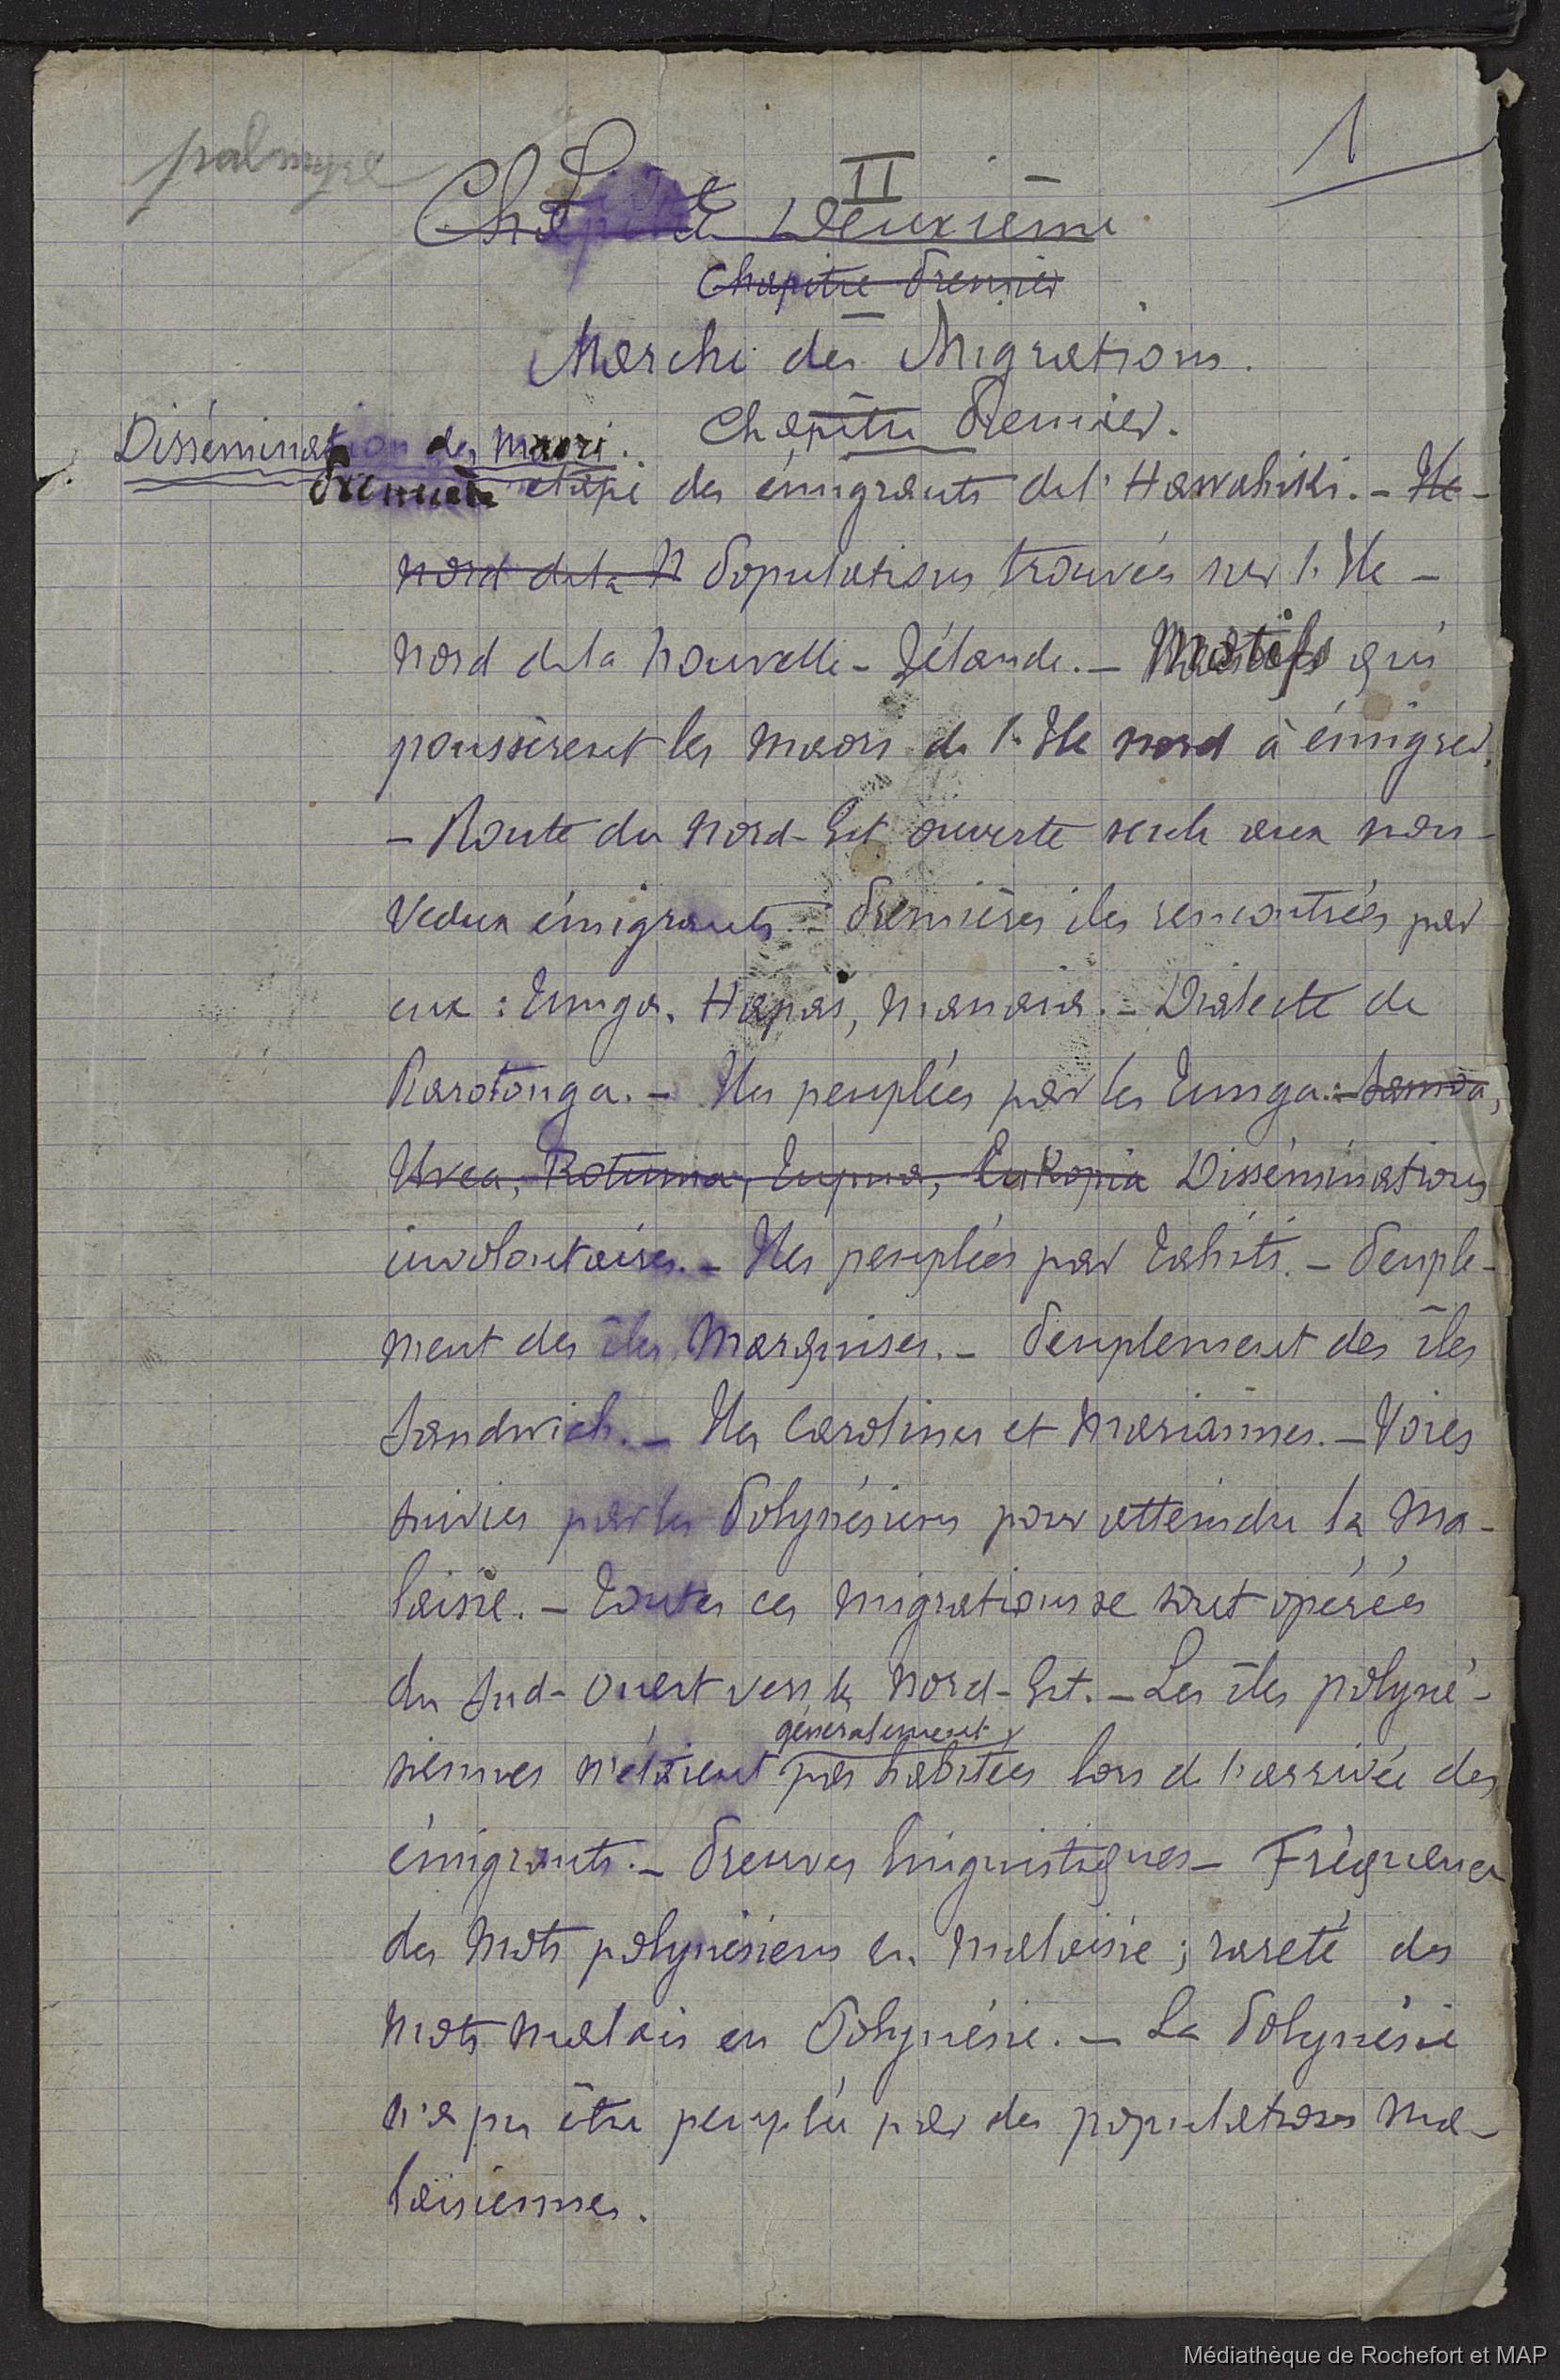 palmyre
1
Livre II
Chapitre Deuxième
Chapitre Premier
Marche des Migrations.
Chapitre Premier.
Dissémination des Maori.
Première étape des émigrants de l'Hawahiki. - Ile-
nord de la N Populations trouvées sur l'Ile-
nord de la Nouvelle-Zélande. - Motifs qui
poussèrent les Maori de l'Ile nord à émigrer.
- Route du Nord-Est ouverte seule aux nou-
veaux émigrants. - Premières îles rencontrées par
eux : Tunga, Hapai, Manaia. - Dialecte de
Rarotonga. - Iles peuplées par les Tunga : - Samoa,
Uvea, Rotuma, Tupua, Tukopia Disséminations
involontaires. - Iles peuplées par Tahiti. - Peuple-
ment des îles Marquises. - Peuplement des îles
Sandwich. - Iles Carolines et Mariannes. - Voies
suivies par les Polynésiens pour atteindre la Ma-
laisie. - Toutes ces migrations se sont opérées
du Sud-Ouest vers le Nord-Est. - Les îles polyné-
généralement
siennes n'étaient pas habitées lors de l'arrivée des
émigrants. - Preuves linguistiques - Fréquence
des mots polynésiens en Malaisie ; rareté des
mots malais en Polynésie. - La Polynésie
n'a pu être peuplée par des populations ma-
laisiennes.
Médiathèque de Rochefort et MAP